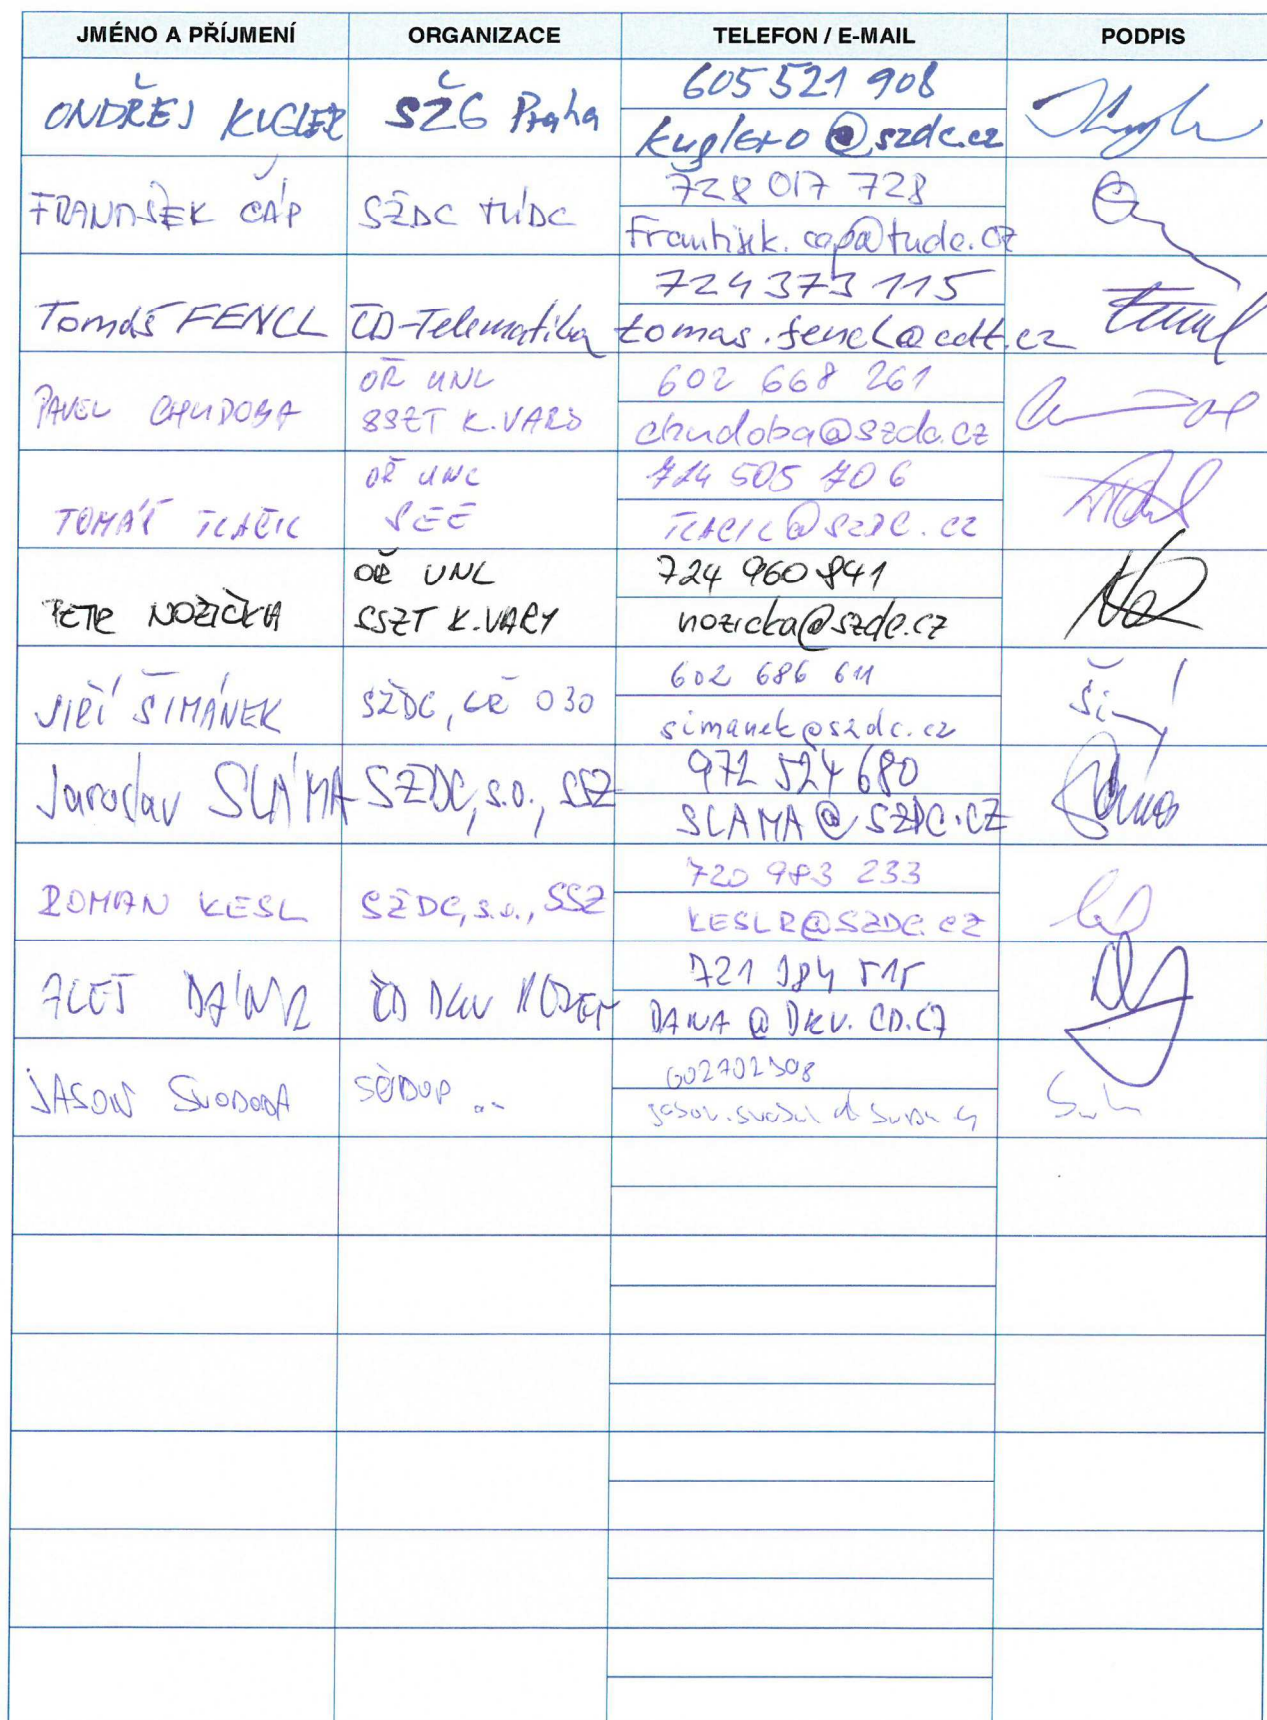 JMÉNO A PŘÍJMENÍ ORGANIZACE TELEFON / E-MAIL PODPIS
ONDŘEJ KUGLER SŽG Praha 605 521 908
kuglero@szdc.cz
FRANTIŠEK ČÁP SŽDC TÚDC 728 017 728
frantisek.cap@tudc.cz
Tomáš FENCL ČD-Telematika 724 373 115
tomas.fencl@cdt.cz
PAVEL CHUDOBA OŘ UNL 602 668 261
SSZT K.VARY chudoba@szdc.cz
TOMÁŠ TLAČIL OŘ UNL 724 505 706
SEE TLACIL@SZDC.CZ
PETR NOŽIČKA OŘ UNL 724 960 841
SSZT K.VARY nozicka@szdc.cz
JIŘÍ ŠIMÁNEK SŽDC, GŘ O30 602 686 611
simanek@szdc.cz
Jaroslav SLÁMA SŽDC, s.o., SSZ 972 524 680
SLAMA@SZDC.CZ
ROMAN KESL SŽDC, s.o., SSZ 720 983 233
KESLR@SZDC.CZ
ALEŠ ČD DKV PLZEŇ 721 984 515
DANA@DKV.CD.CZ
JASON SVOBODA SUDOP 602702308